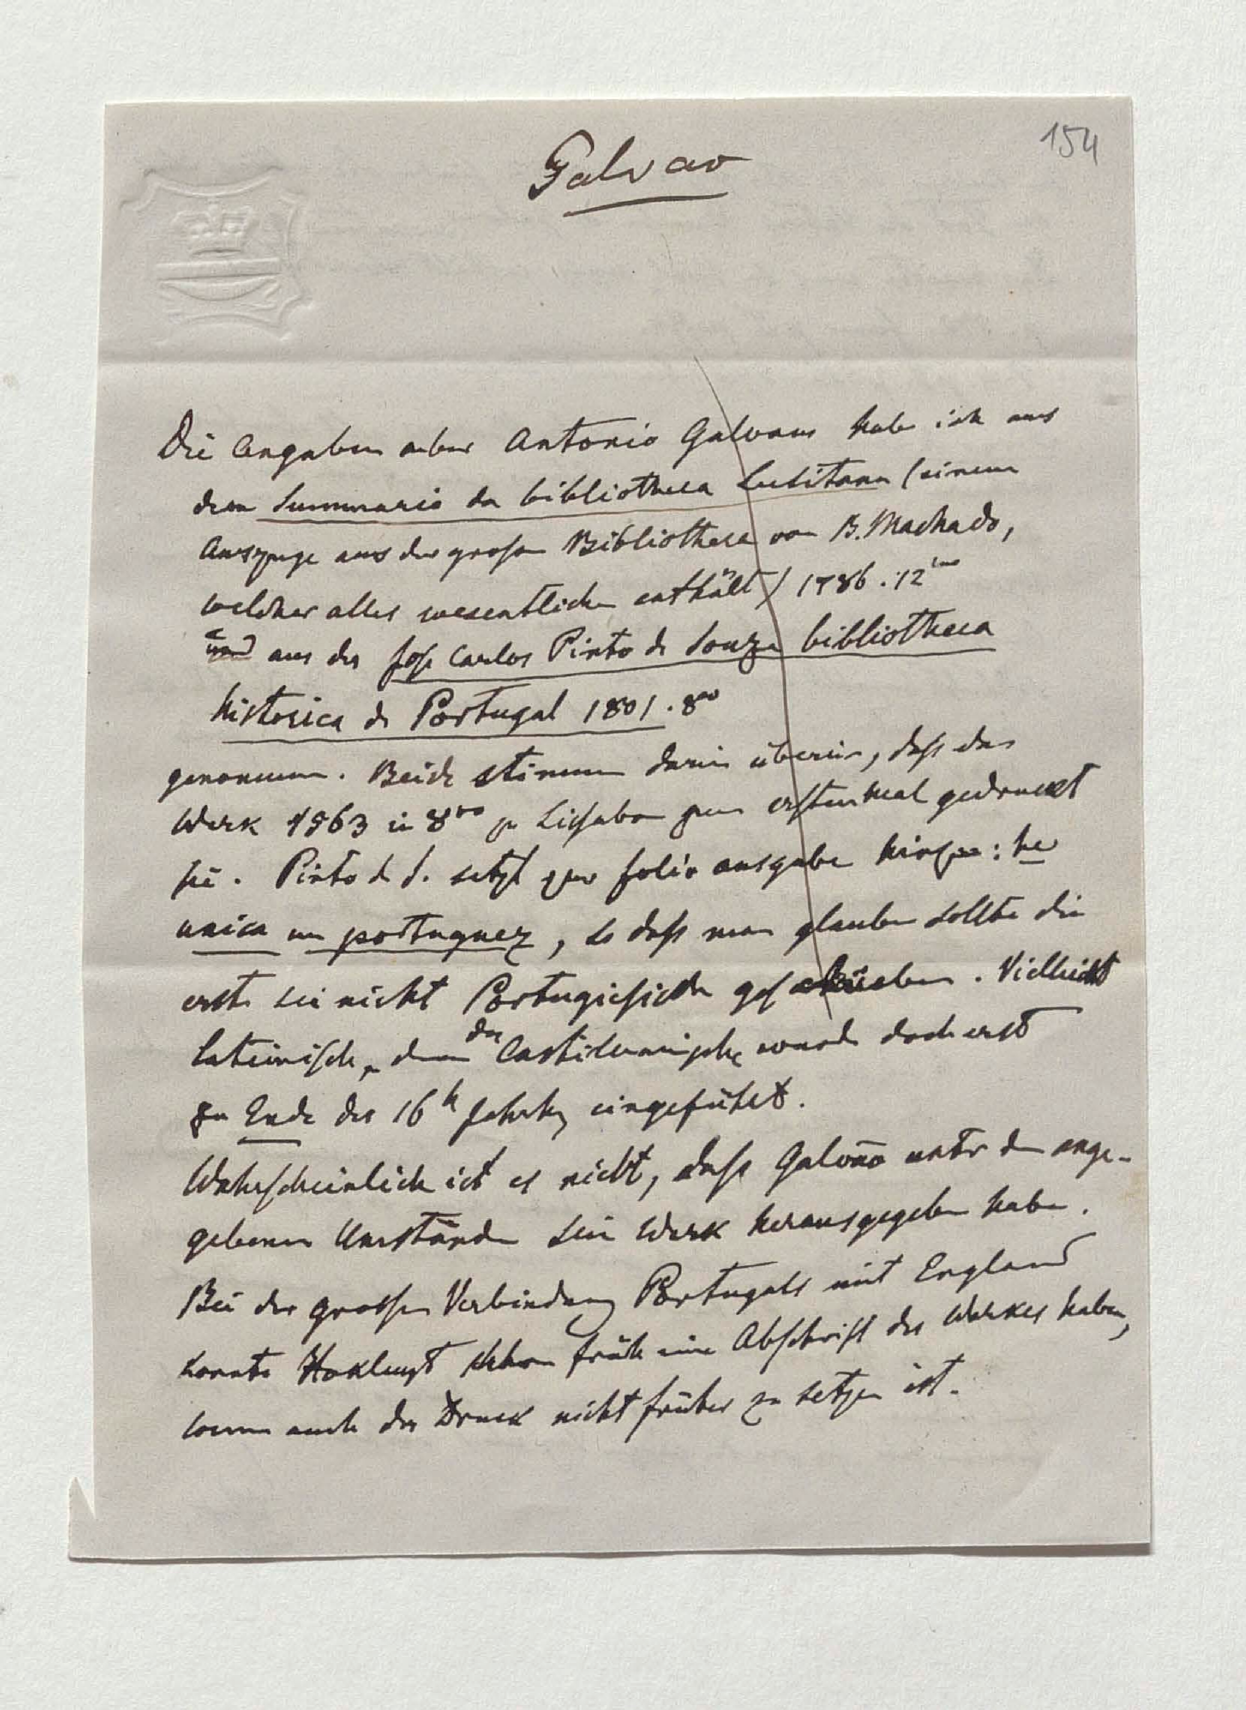 154
Galvao
Die Angaben über Antonio Galvaus habe ich aus
dem Summario da bibliotheca Lusitana (einem
Auszuge aus der grossen Bibliotheca von B. Machado,
welcher alles wesentliche enthält) 1786. 12mo
und aus der Jose Carlos Pinto de Souza bibliotheca
historica de Portugal 1801. 8vo
genommen. Beide stimmen darin überein, dass das
Werk 1563 in 8vo zu Lissabon zum erstenmal gedruckt
sei. Pinto d S. setzt zur folio ausgabe hinzu: he
unica em portuguez, so dass man glauben sollte die
erste sei nicht Portugiesisch geschrieben. Vielleicht
lateinisch, denn das Castilianische wurde doch erst
zu Ende des 16n Jahrh eingeführt.
Wahrscheinlich ist es nicht, dass Galvão unter den ange-
gebenen Umständen sein Werk herausgegeben habe.
Bei der grossen Verbindung Portugals mit England
konnte Hakluyt schon früh eine Abschrift des Werkes haben,
wenn auch der Druck nicht früher zu setzen ist.